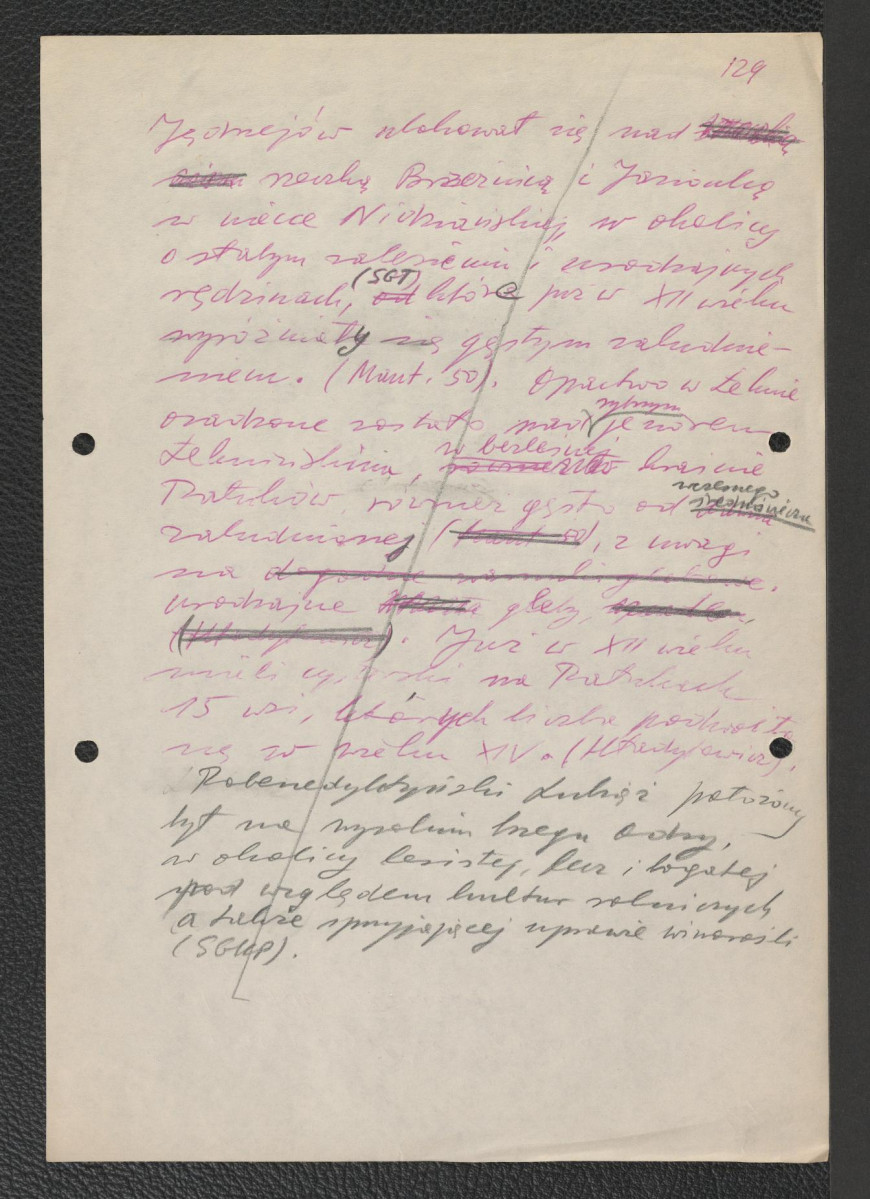 129
Jędrzejów ulokował się nad
rzeczką Brzeźnicą i Jasionką
w niecce Nidziańskiej, w okolicy
o stałym zalesieniu i urodzajnych
(SGT)
rędzinach, od które już w XII wieku
wyróżniały się gęstym zaludnie-
niem. (Mant. 50). Opactwo w Łeknie
rybnym
osadzone zostało nad jeziorem
Łekneńskim, w bezleśnej krainie
Pałuków, również gęsto od wczesnego
średniowiecza
zaludnionej (Mant 50), z uwagi
na dogodne warunki glebowe.
urodzajne gleby,
(Hładyłowicz). Już w XII wieku
mieli cystersi na Pałukach
15 wsi, których liczba podwoiła
się w wieku XIV. (Hładyłowicz).
Pobenedyktyński Lubiąż położony
był na wysokim brzegu Odry,
w okolicy lesistej, lecz i bogatej
pod względem kultur rolniczych
a także sprzyjającej uprawie winorośli
(SGKP).